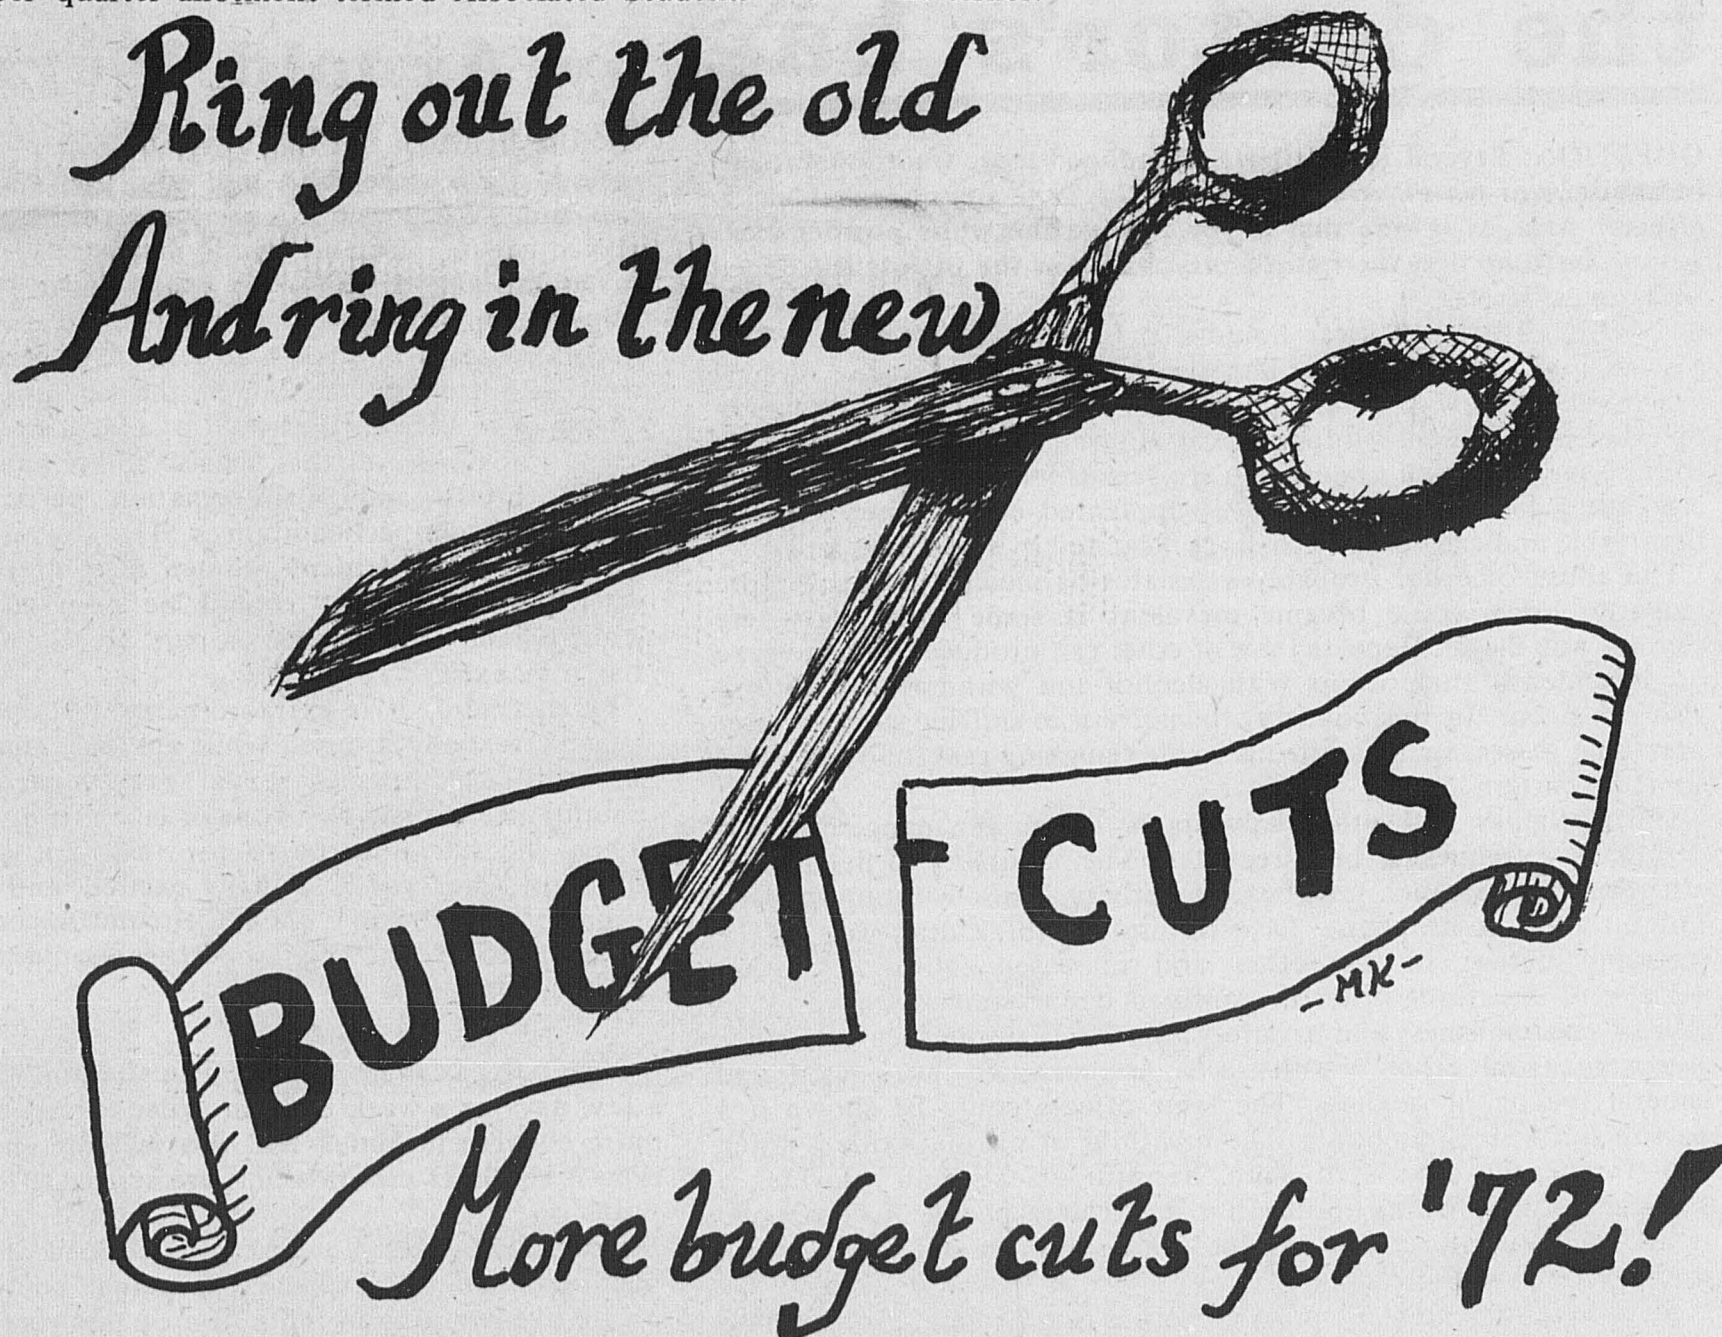 Ring out the old
And ring in the new
BUDGET - CUTS
-MK-
More budget cuts for '72!